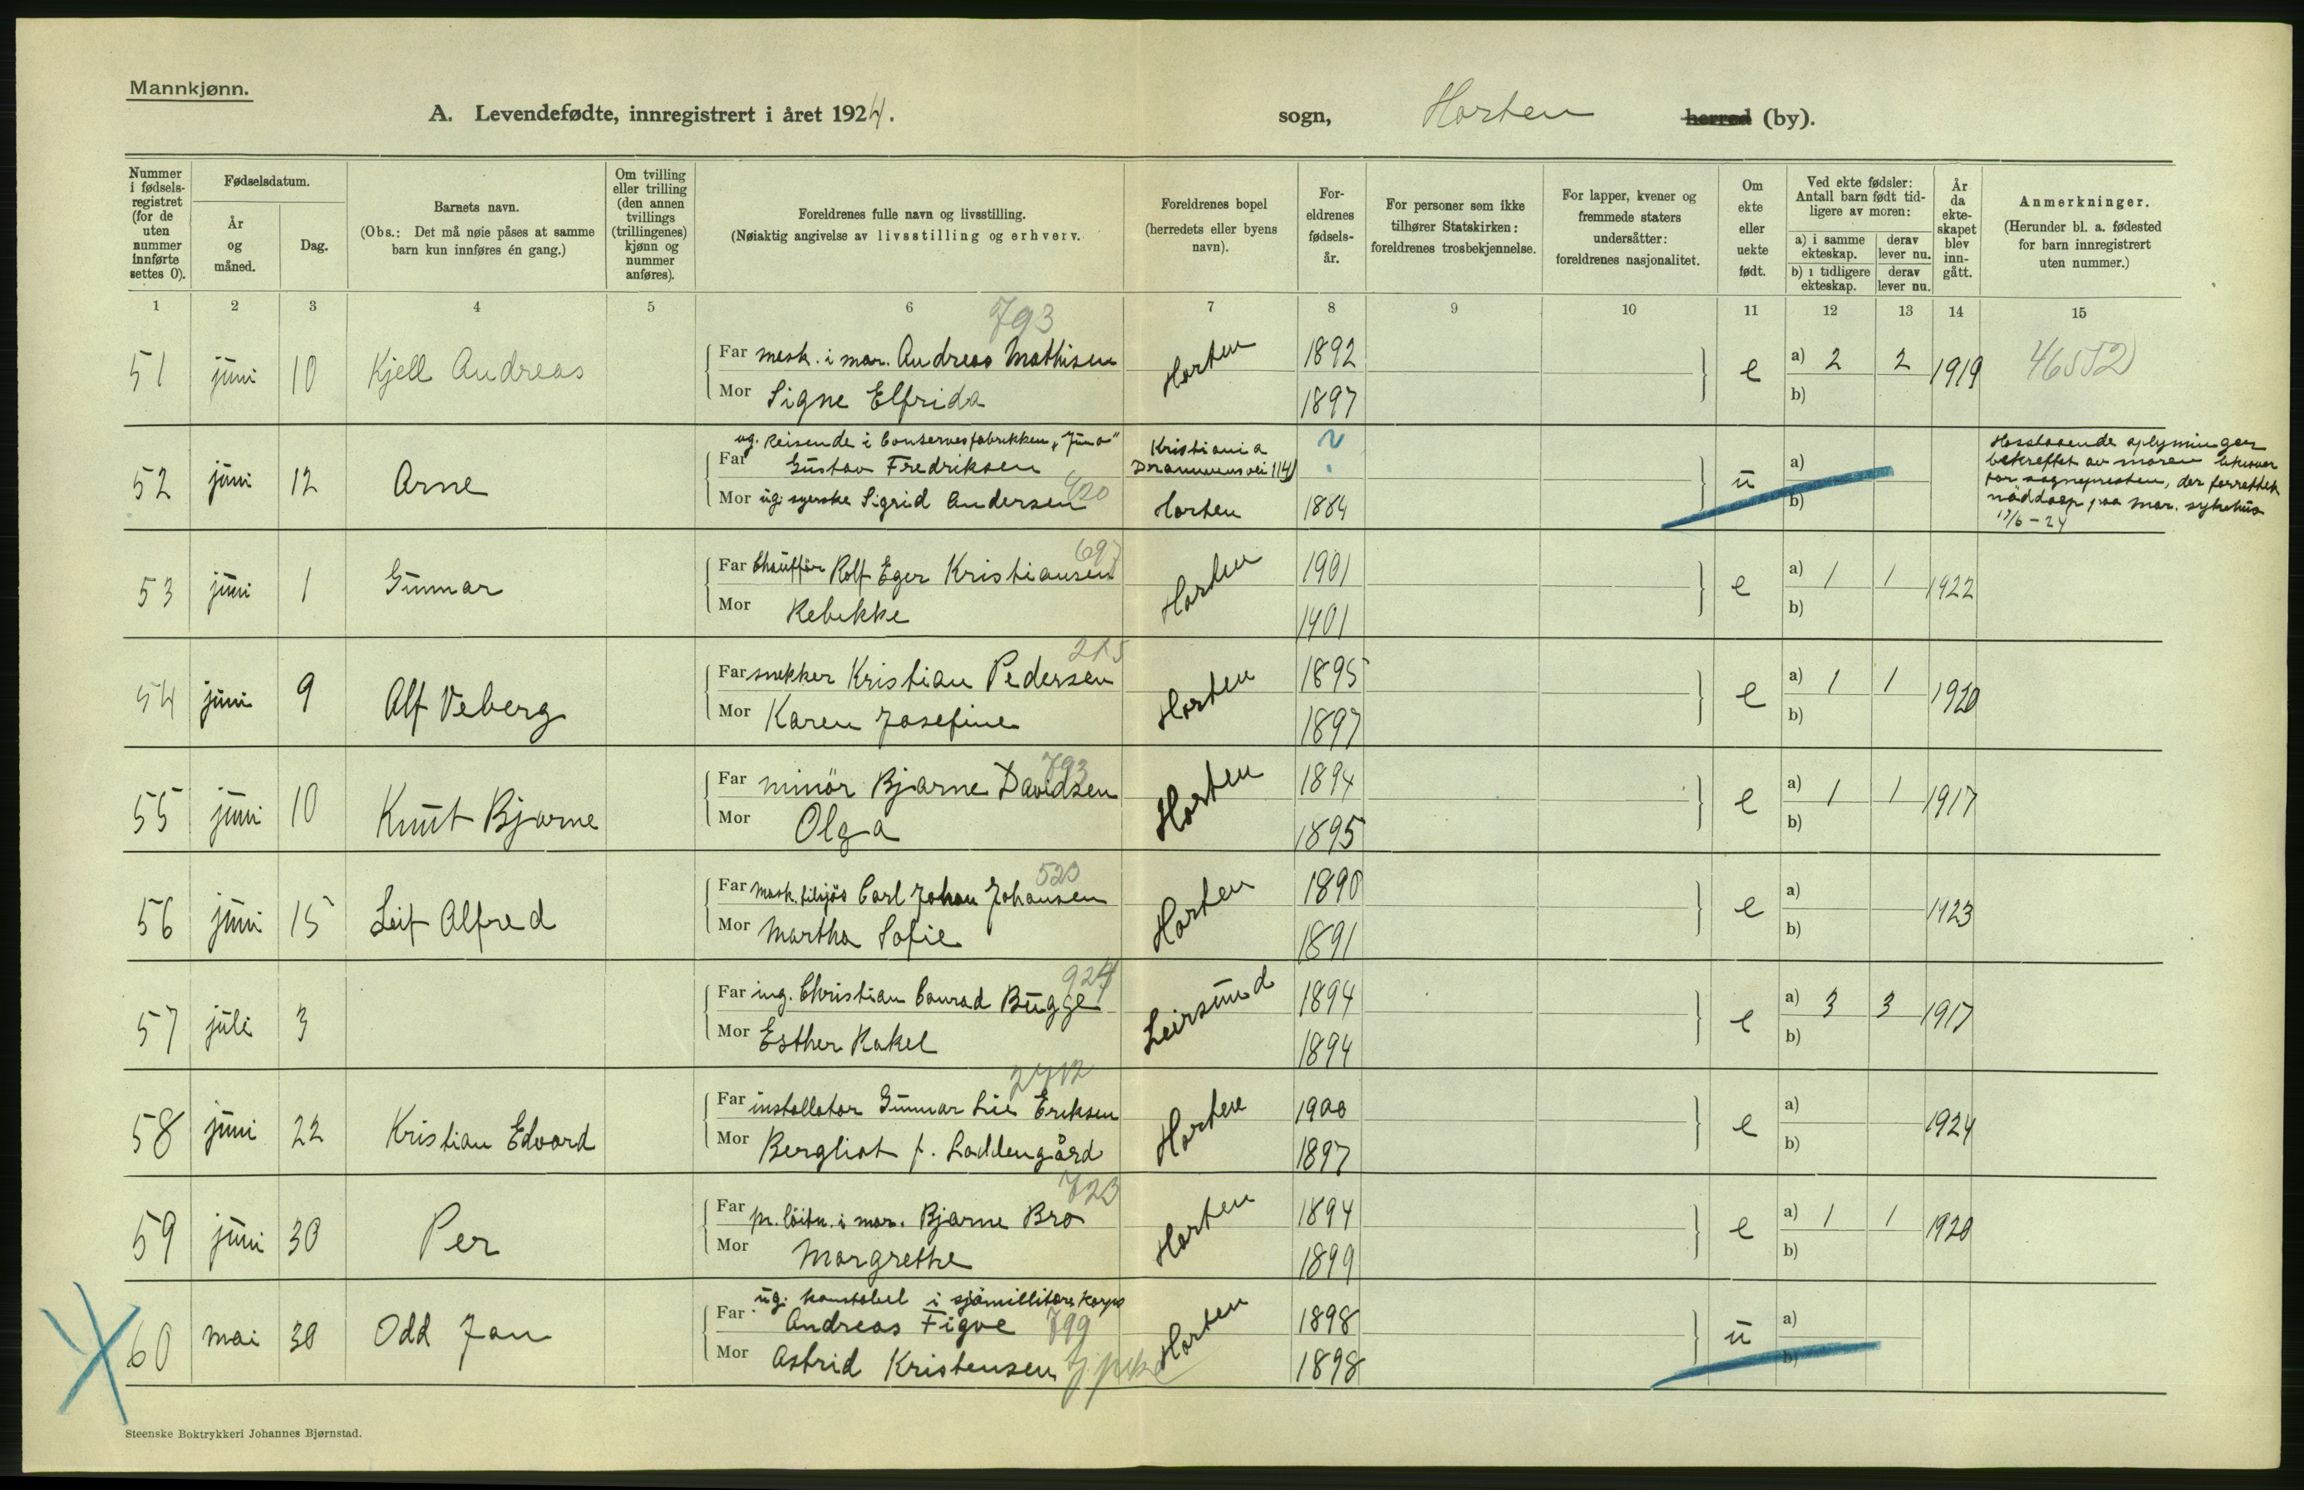 Mannkjønn.
A. Levendefødte, innregistrert i året 1924. sogn, Horten herred (by).
Nummer i fødsels-registret (for de uten nummer innførte settes 0).
Fødselsdatum.
År og måned.
Dag.
Barnets navn.
(Obs.: Det må nøie påses at samme barn kun innføres én gang.)
Om tvilling eller trilling (den annen tvillings (trillingenes) kjønn og nummer anføres).
Foreldrenes fulle navn og livsstilling.
(Nøiaktig angivelse av livsstilling og erhverv.
Foreldrenes bopel
(herredets eller byens navn).
For-eldrenes fødsels-år.
For personer som ikke tilhører Statskirken: foreldrenes trosbekjennelse.
For lapper, kvener og fremmede staters undersåtter: foreldrenes nasjonalitet.
Om ekte eller uekte født.
Ved ekte fødsler: Antall barn født tid-ligere av moren:
a) i samme ekteskap.
derav lever nu.
b) i tidligere ekteskap.
derav lever nu.
År da ekte-skapet blev inn-gått.
Anmerkninger.
(Herunder bl. a. fødested for barn innregistrert uten nummer.)
1 2 3 4 5 6 7 8 9 10 11 12 13 14 15
793
51 juni 10 Kjell Andreas Far mask. i mar. Andreas Mathisen Horten 1892 e a) 2 2 1919 46552
Mor Signe Elfrida 1897 b)
ug. Reisende i Conservesfabrikken "Juno" Kristiania
52 juni 12 Arne Far Gustav Fredriksen Drammensvei 114 ? u a)
Mor ug. syerske Sigrid Andersen 420 Horten 1884 b)
Hosstaaende oplysninger
bekreftet av moren
for sognepresten, der forrettet
nöddaap paa mar. sykehus
17/6 - 24
697
53 juni 1 Gunnar Far Chaufför Rolf Eger Kristiansen Horten 1901 e a) 1 1 1922
Mor Rebekke 1901 b)
215
54 juni 9 Alf Veberg Far snekker Kristian Pedersen Horten 1895 e a) 1 1 1920
Mor Karen Josefine 1897 b)
793
55 juni 10 Knut Bjarne Far minör Bjarne Davidsen Horten 1894 e a) 1 1 1917
Mor Olga 1895 b)
523
56 juni 15 Leif Alfred Far mask. tilsjös Carl Johan Johansen Horten 1890 e a) 1923
Mor Martha Sofie 1891 b)
924
57 juli 3 Far ing. Christian Conrad Bugge Leirsund 1894 e a) 3 3 1917
Mor Esther Rakel 1894 b)
58 juni 22 Kristian Edvard Far installatør Gunnar Lie Eriksen Horten 1900 e a) 1924
Mor Bergliot f. Laddengård 1897 b)
723
59 juni 30 Per Far pr. löitn. i mar. Bjarne Bro Horten 1894 e a) 1 1 1920
Mor Margrethe 1899 b)
ug. konstabel i sjömillitære korps
60 mai 30 Odd Jan Far Andreas Figve 799 Horten 1898 u a)
Mor Astrid Kristensen tj. pike 1898 b)
Steenske Boktrykkeri Johannes Bjørnstad.